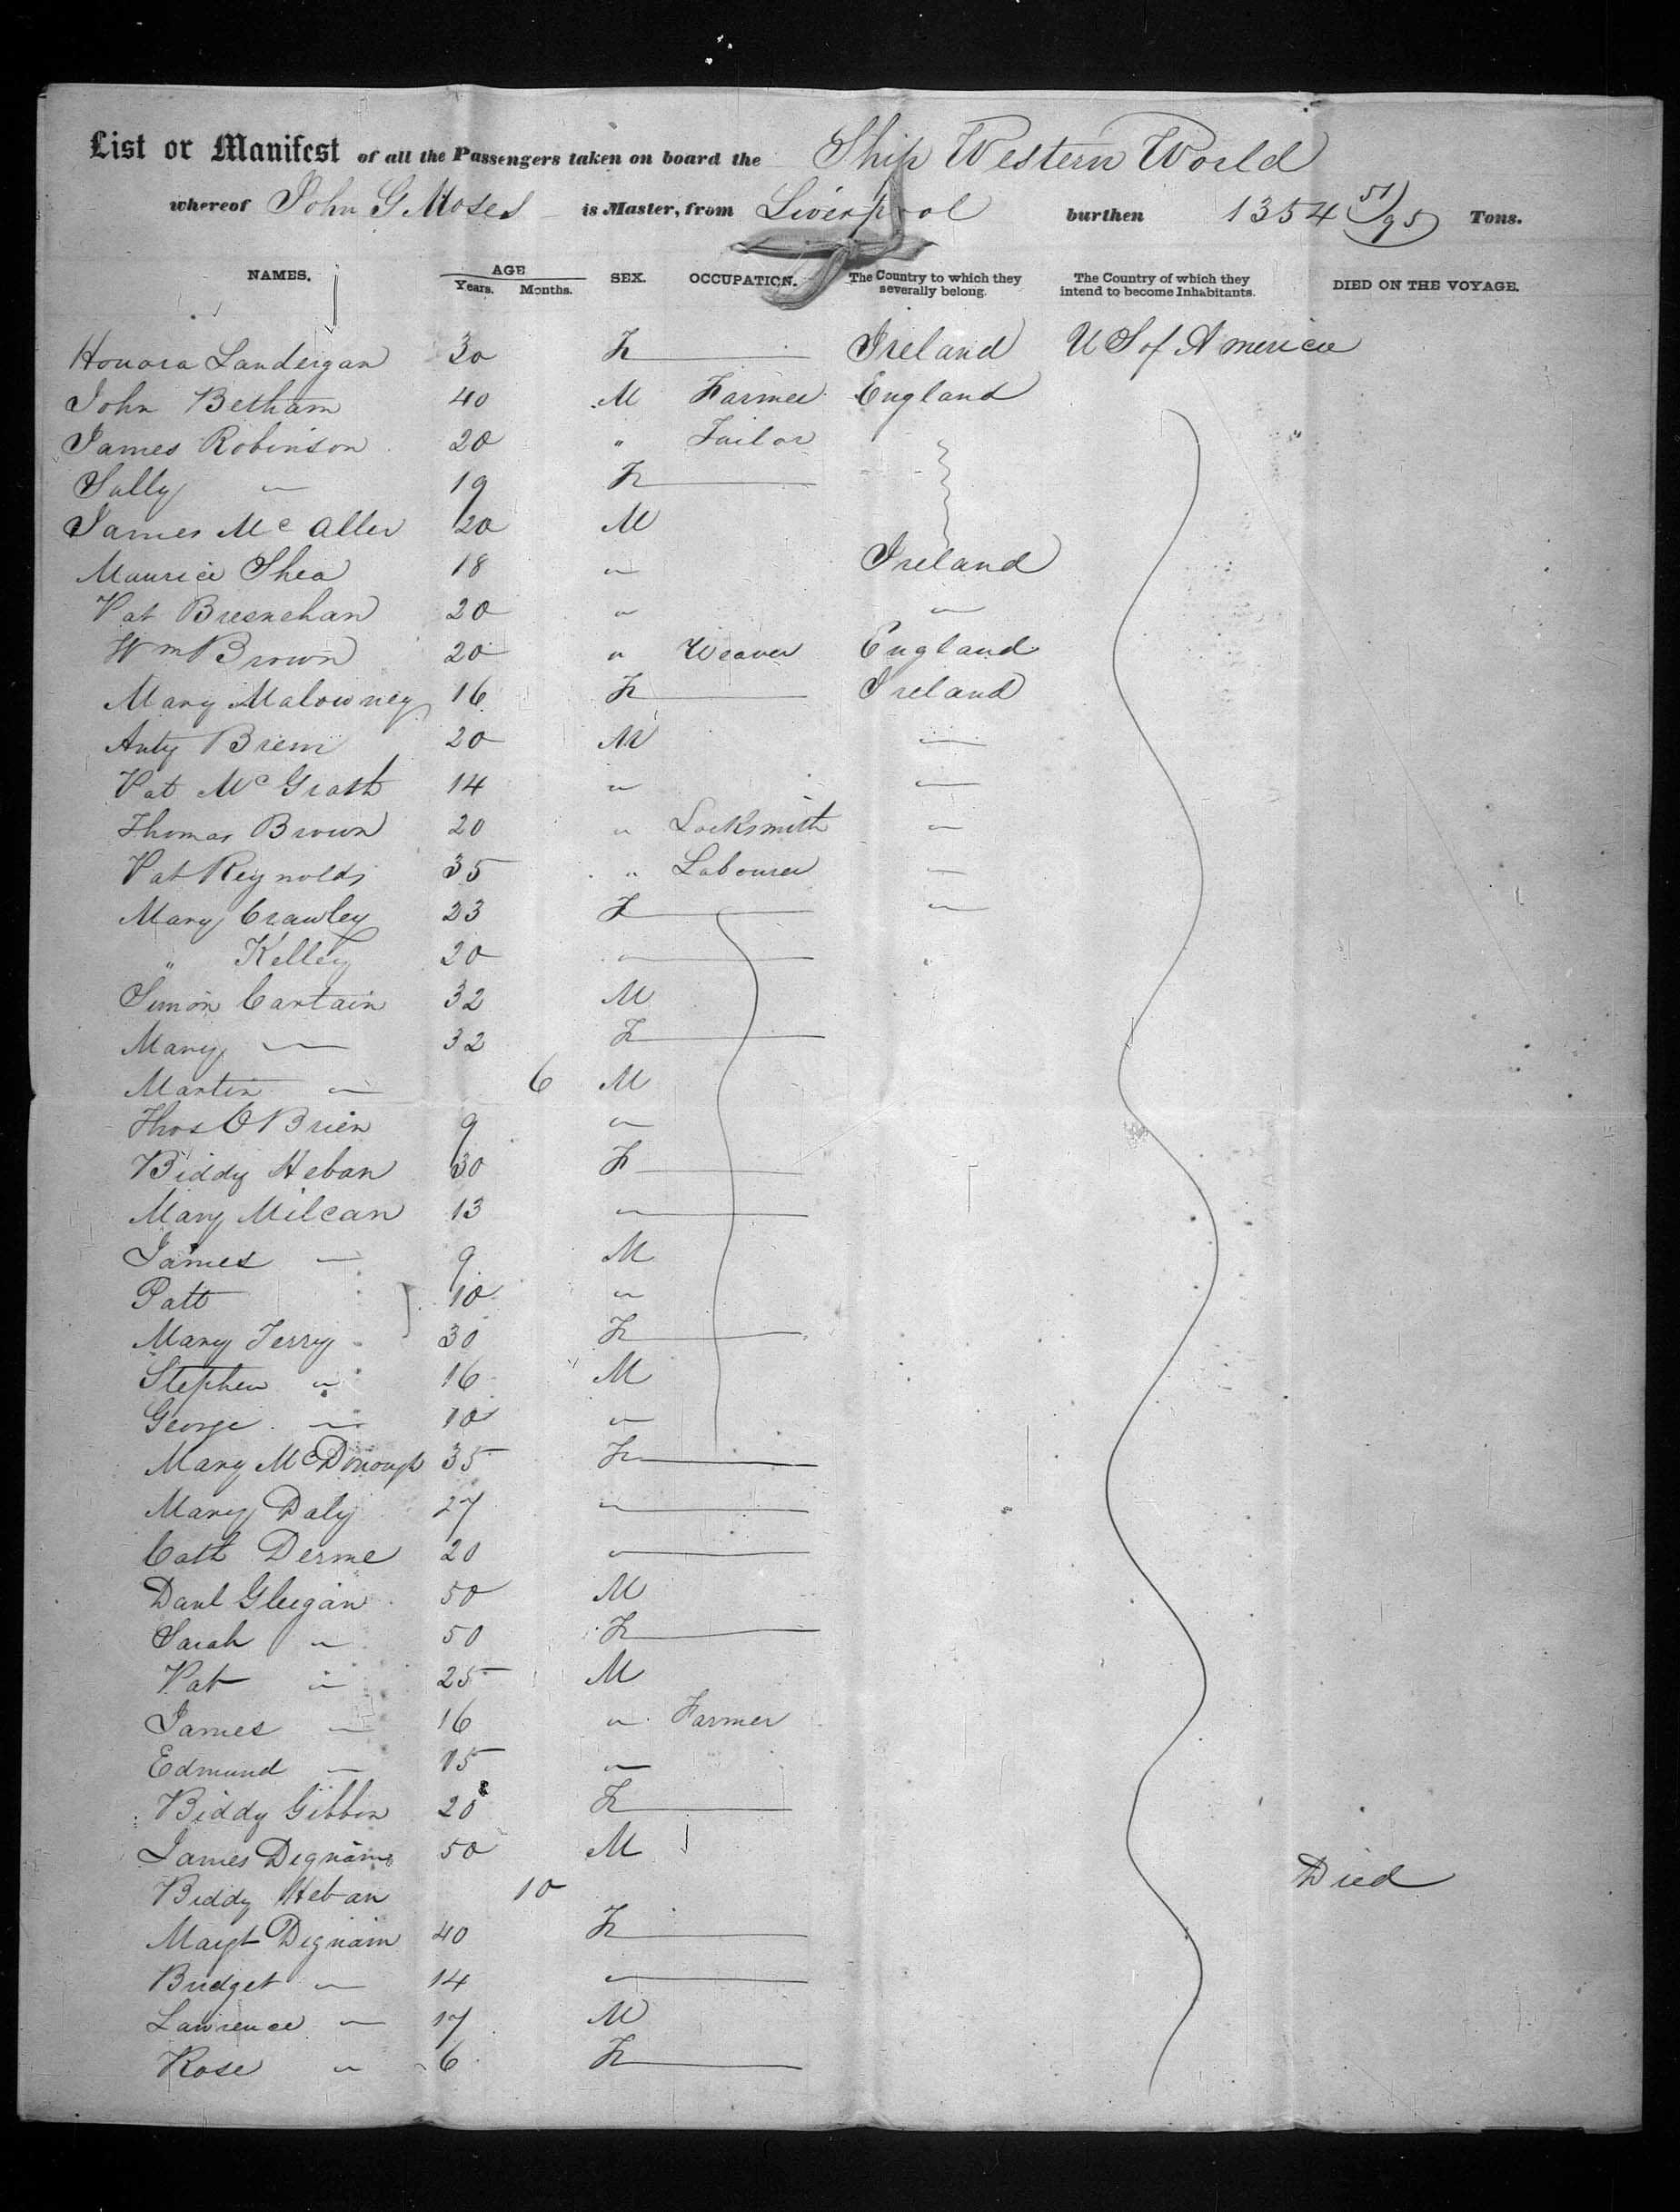 List or Manifest of all the Passengers taken on board the Ship Western World
whereof John G Moses is Master, from Liverpool burthen 1354 51/95 Tons.
NAMES. AGE Years. Months. SEX. OCCUPATION. The Country to which they severally belong. The Country of which they intend to become Inhabitants. DIED ON THE VOYAGE.
Honora Landergan 30 F Ireland U S of America
John Betham 40 M Farmer England
James Robinson 20 " Tailor
Sally " 19 F
James Mc 20 M
Maurice Shea 18 " Ireland
Pat Bresnehan 20 " "
Wm Brown 20 " Weaver England
Mary Malowney 16 F Ireland
Anty 20 M "
Pat McGrath 14 " "
Thomas Brown 20 " Locksmith "
Pat Reynolds 35 " Labourer "
Mary Crawley 23 F "
" Kelley 20 "
Simon Cartain 32 M
Mary " 32 F
Martin " 6 M
Thos O Brien 9 "
Biddy Heban 30 F
Mary Milcan 13 "
James " 9 M
Patt 10 "
Mary Terry 30 F
Stephen " 16 M
George " 10 "
Mary McDonough 35 F
Mary Daly 27 "
Cath Derme 20 "
Danl Gleegan 50 M
Sarah " 50 F
Pat " 25 M
James " 16 " Farmer
Edmund " 15 "
Biddy Gibbon 20 F
James Dignam 50 M
Biddy Heban 10 Died
Margt Dignam 40 F
Bridget " 14 "
Lawrence " 17 M
Rose " 6 F